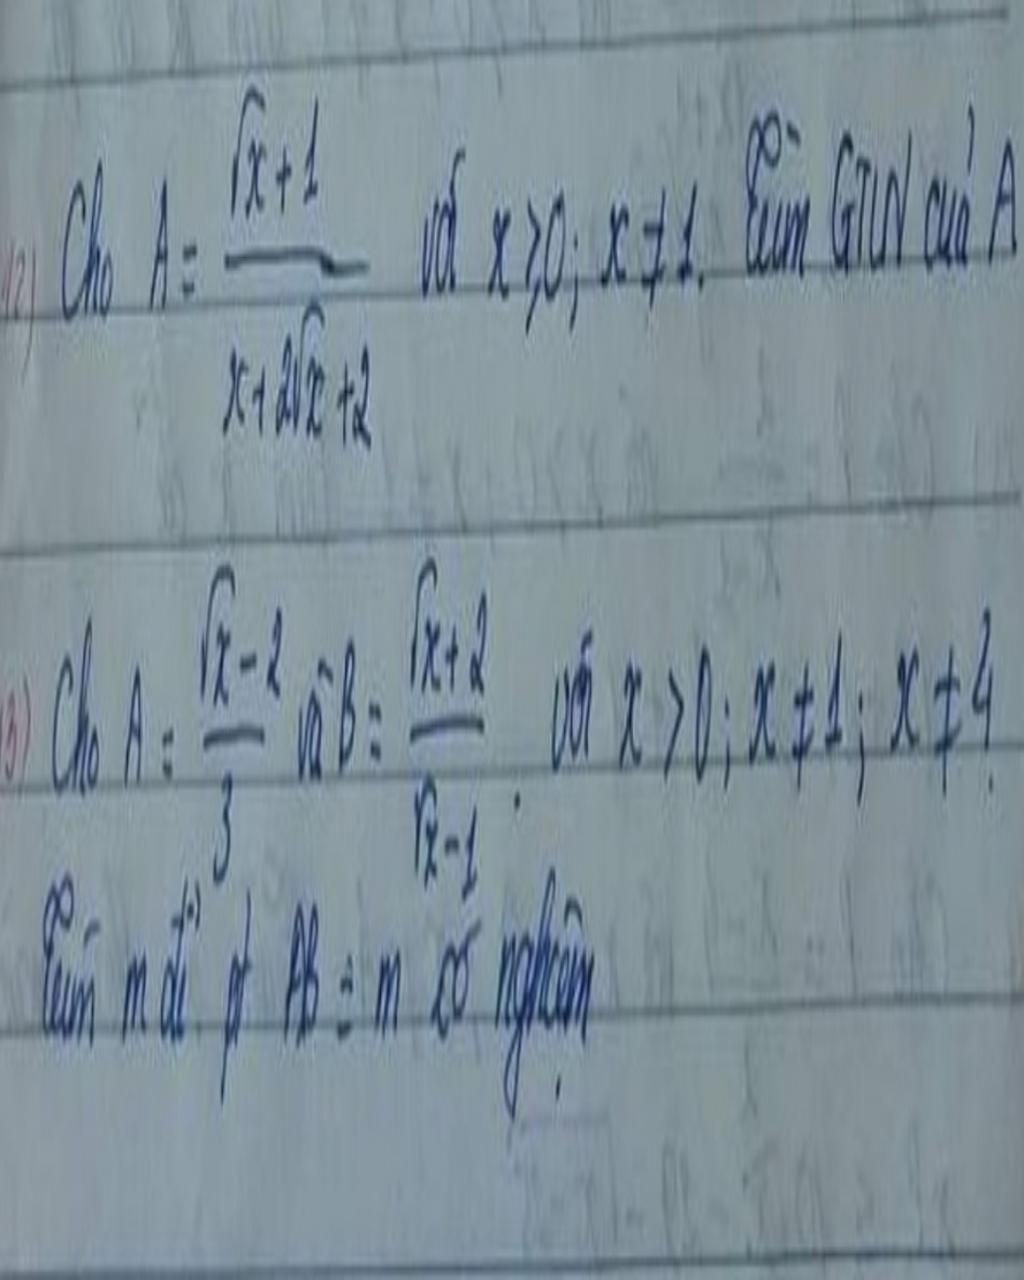 12) Cho A = (√x + 1) / (x + 2√x + 2) với x ≥ 0; x ≠ 1. Tìm GTLN của A
3) Cho A = (√x - 2) / 3 và B = (√x + 2) / (√x - 1). với x > 0; x ≠ 1; x ≠ 4.
Tìm m để pt AB = m có nghiệm